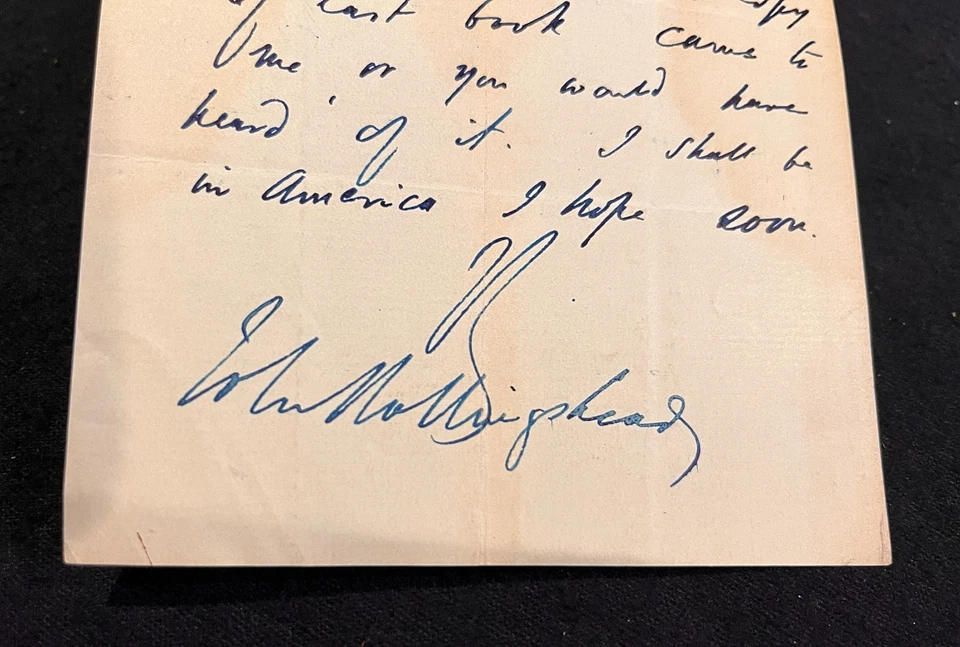 copy
of last book came to
me or you would have
heard of it. I shall be
in America I hope soon.
John Hollingshead